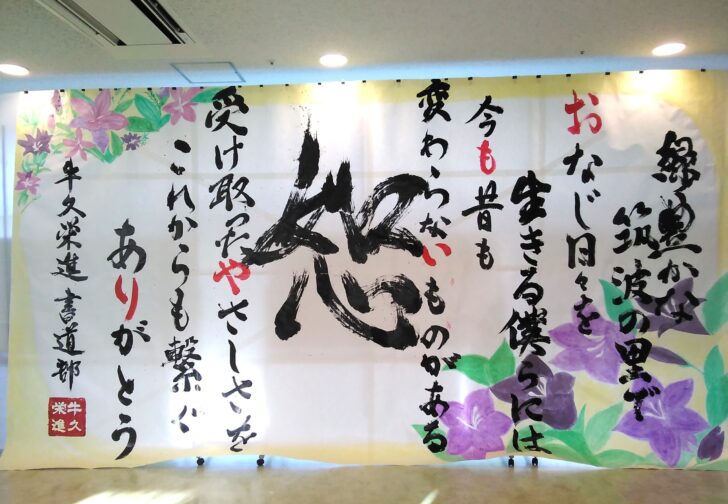 緑豊かな
筑波の里で
おなじ日々を
生きる僕らには
今も昔も
変わらないものがある
恕
受け取ったやさしさを
これからも繋ぐ
ありがとう
牛久栄進 書道部
牛久
栄進